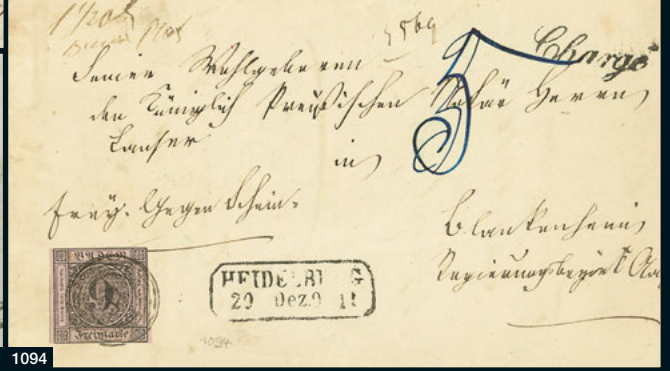 5569
Chargé
Seiner Wohlgeboren
den Königlich Preußischen Notär Herrn
in
frey. Gegen Schein.
Blankenheim
Regierungsbezirk
BADEN
9
Freimarke
HEIDELB G
29 Dez. 9 11
1094
1094